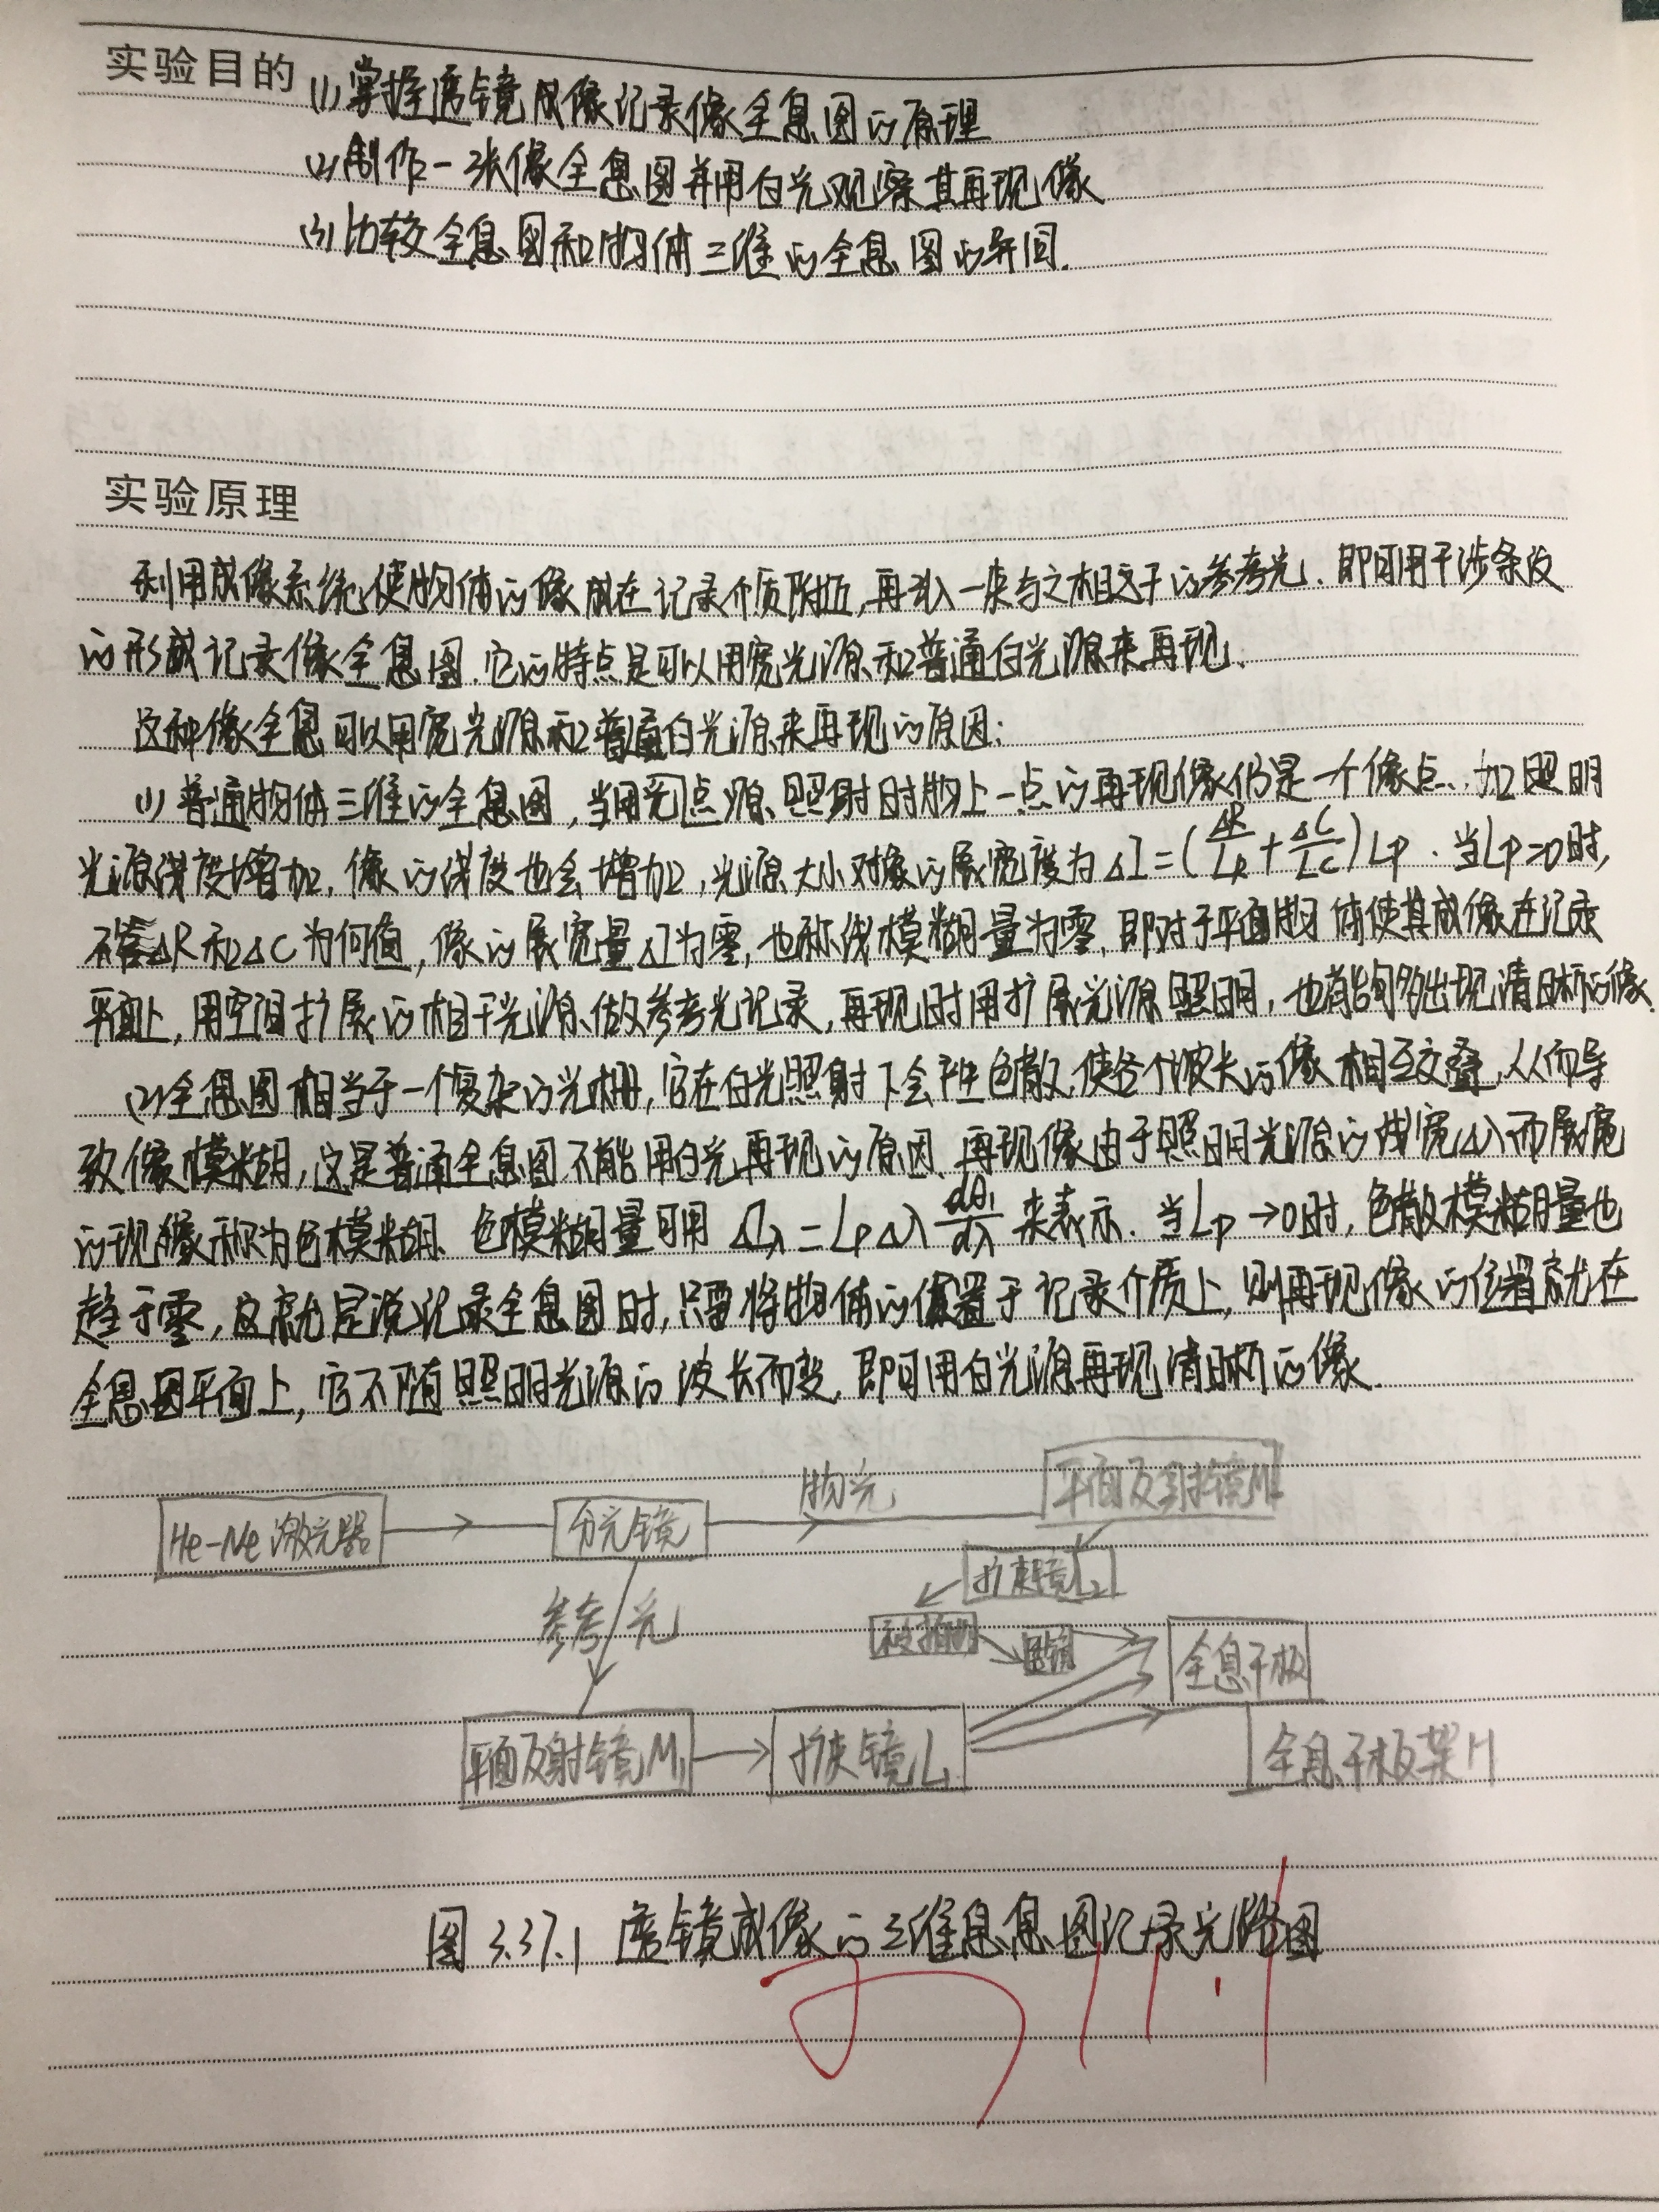 实验目的
(1)掌握透镜成像记录像全息图的原理
(2)制作一张像全息图并用白光观察其再现像
(3)比较全息图和物体三维的全息图的异同.
实验原理
利用成像系统使物体的像成在记录介质附近,再引入一束与之相干的参考光.即可用干涉条纹
的形式记录像全息图.它的特点是可以用宽光源和普通白光源来再现.
这种像全息可以用宽光源和普通白光源来再现的原因:
(1)普通物体三维的全息图,当用光点源照射时物上一点的再现像仍是一个像点.如照明
光源线度增加,像的线度也会增加,光源大小对像的展宽度为ΔI=(ΔR/LR+ΔC/LC)LP.当LP=0时,
不管ΔR和ΔC为何值,像的展宽量ΔI为零,也称线模糊量为零.即对于平面物体使其成像在记录
平面上,用空间扩展的相干光源做参考光记录,再现时用扩展光源照明,也能够出现清晰的像.
(2)全息图相当于一个复杂的光栅,它在白光照射下会产生色散,使各个波长的像相互交叠,从而导
致像模糊,这是普通全息图不能用白光再现的原因.再现像由于照明光源的线宽Δλ而展宽
的现像称为色模糊.色模糊量可用ΔIλ=LPΔλ dθ1/dλ来表示.当LP→0时,色散模糊量也
趋于零,这就是说记录全息图时,只要将物体的像置于记录介质上,则再现像的位置就在
全息图平面上,它不随照明光源的波长而变,即可用白光源再现清晰的像.
He-Ne激光器 分光镜 物光 平面反射镜M2
扩束镜L2
参考光 被摄物 透镜 全息干板
平面反射镜M1 扩束镜L1 全息干板架H
图3.37.1 透镜成像的三维息息图记录光路图